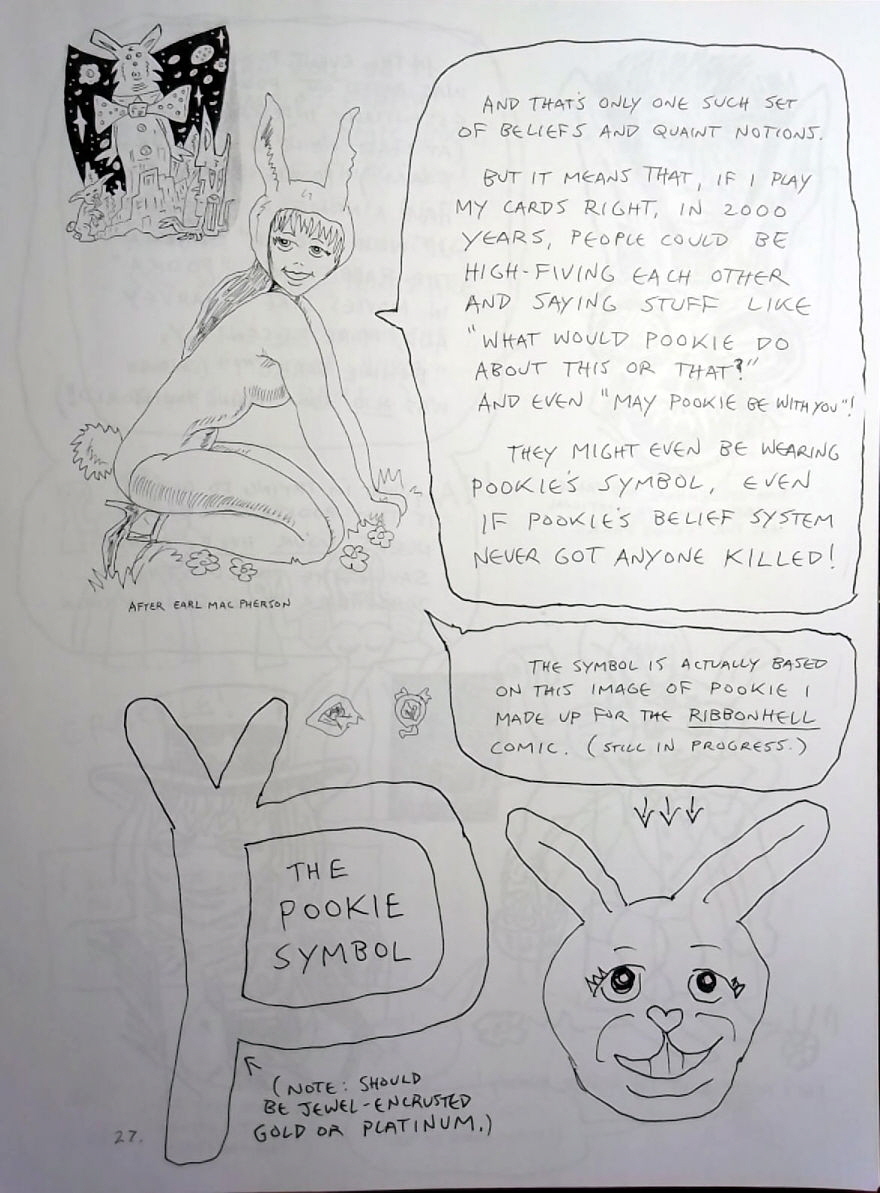 AND THAT'S ONLY ONE SUCH SET
OF BELIEFS AND QUAINT NOTIONS.
BUT IT MEANS THAT, IF I PLAY
MY CARDS RIGHT, IN 2000
YEARS, PEOPLE COULD BE
HIGH-FIVING EACH OTHER
AND SAYING STUFF LIKE
"WHAT WOULD POOKIE DO
ABOUT THIS OR THAT?"
AND EVEN "MAY POOKIE BE WITH YOU"!
THEY MIGHT EVEN BE WEARING
POOKIE'S SYMBOL, EVEN
IF POOKIE'S BELIEF SYSTEM
NEVER GOT ANYONE KILLED!
AFTER EARL MAC PHERSON
THE SYMBOL IS ACTUALLY BASED
ON THIS IMAGE OF POOKIE I
MADE UP FOR THE RIBBONHELL
COMIC. (STILL IN PROGRESS.)
THE
POOKIE
SYMBOL
(NOTE: SHOULD
BE JEWEL-ENCRUSTED
GOLD OR PLATINUM.)
27.